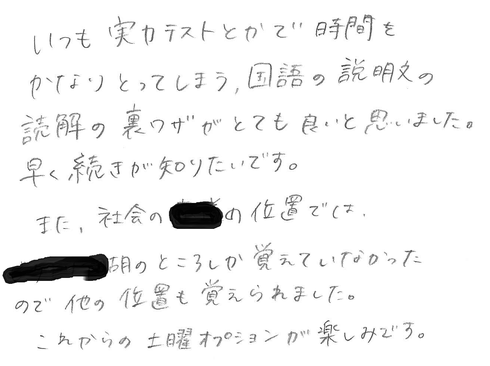 いつも実力テストとかで時間を
かなりとってしまう,国語の説明文の
読解の裏ワザがとても良いと思いました。
早く続きが知りたいです。
また,社会のの位置では,
胡のところしか覚えていなかった
ので他の位置も覚えられました。
これからの土曜オプションが楽しみです。